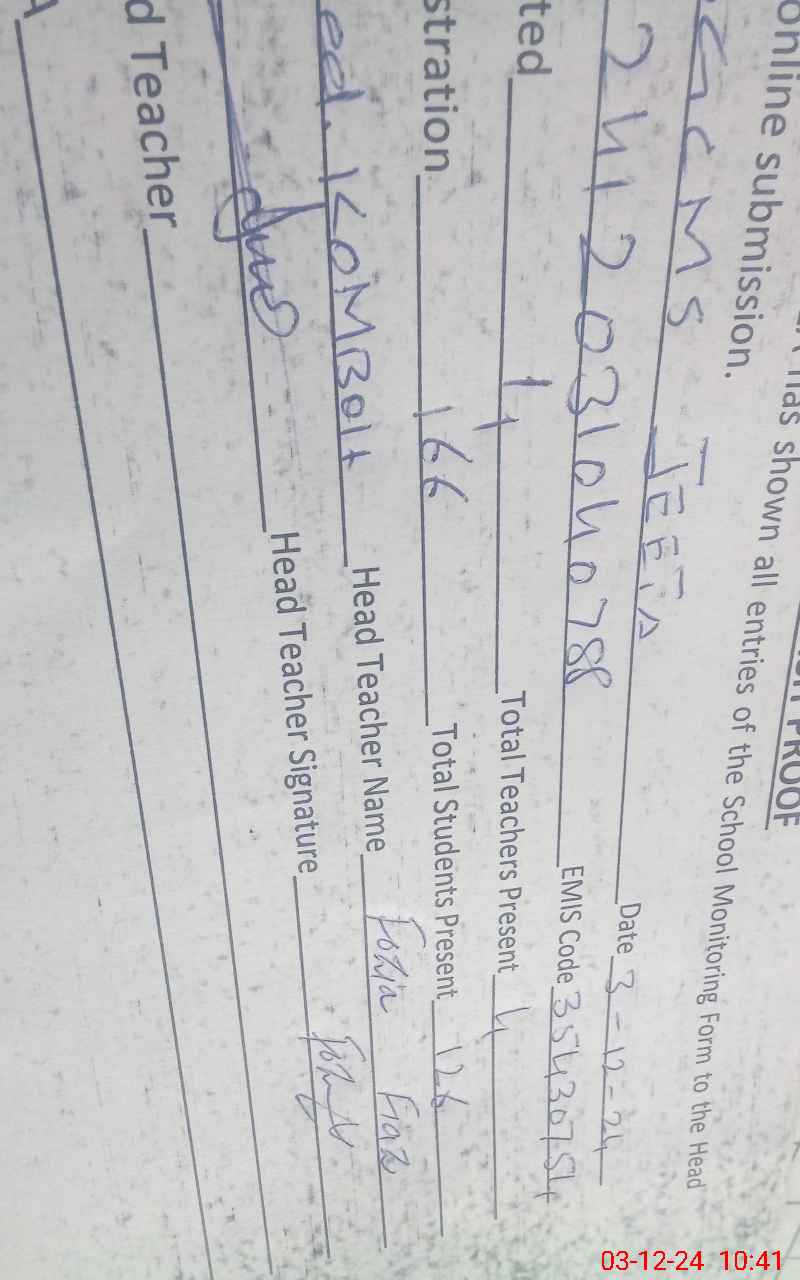 PROOF
has shown all entries of the School Monitoring Form to the Head
online submission.
GCMS JEETA Date 3-12-24
2412031040788 EMIS Code 35430754
ted Total Teachers Present 4
stration 166 Total Students Present 126
ed. KOMBOH Head Teacher Name Fozia Fiaz
Head Teacher Signature Fozia
d Teacher
03-12-24 10:41